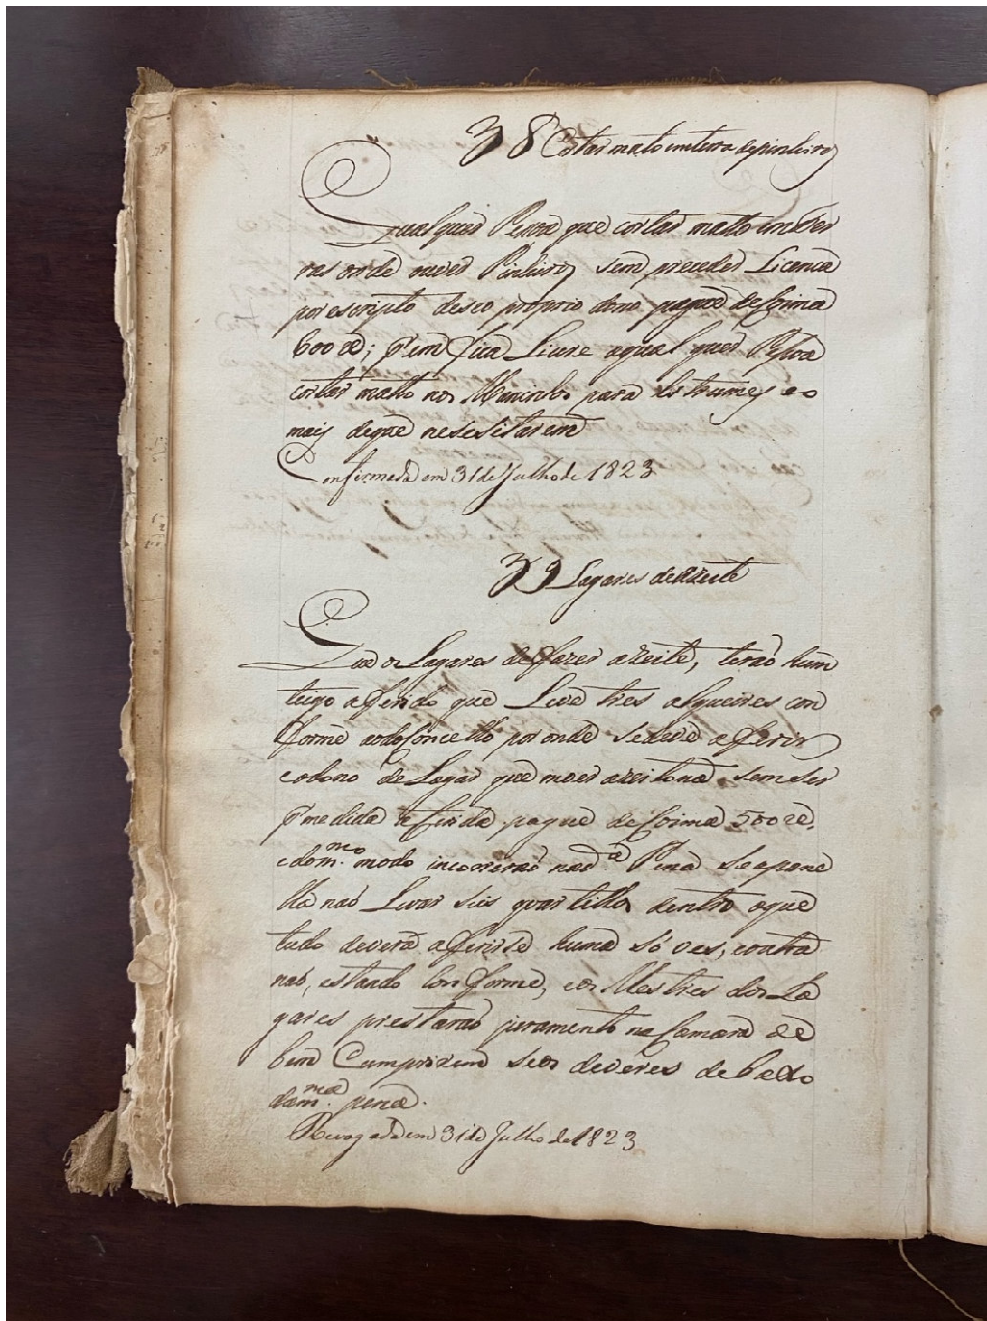 38 Cortar mato em terra de pinheiros
Qualquer Pessoa que cortar matto em ter
ras onde ouver Pinheiros, sem preceder Licença
por escripto de seo proprio dono pague de Coima
600 rs; porem fica Livre a qual quer Pessoa
cortar matto nos Maninhos para Estrumes e o
mais de que nesesitarem
Confirmada em 31 de Julho de 1823
39 Lagares de Azeite
Que os Lagares de fazer azeite, teraõ hum
teigo aferido que Leve tres alqueires con
forme ao do Concelho por onde se deve aferir
e o dono de Lagar que moer azeitona sem ser
pr medida aferida pague de Coima 500 rs,
e do m.mo modo incorreraõ na d.a Pena se a pane
lla naõ Levar seis quartilhos dentro o que
tudo devera aferirse huma só ves, e outra
naõ, estando Conforme, e os Mestres dos La
gares prestaraõ juramento na Camara de
bem Cumprirem seos deveres de baxo
da m.ma pena.
Revogada em 31 de Julho de 1823